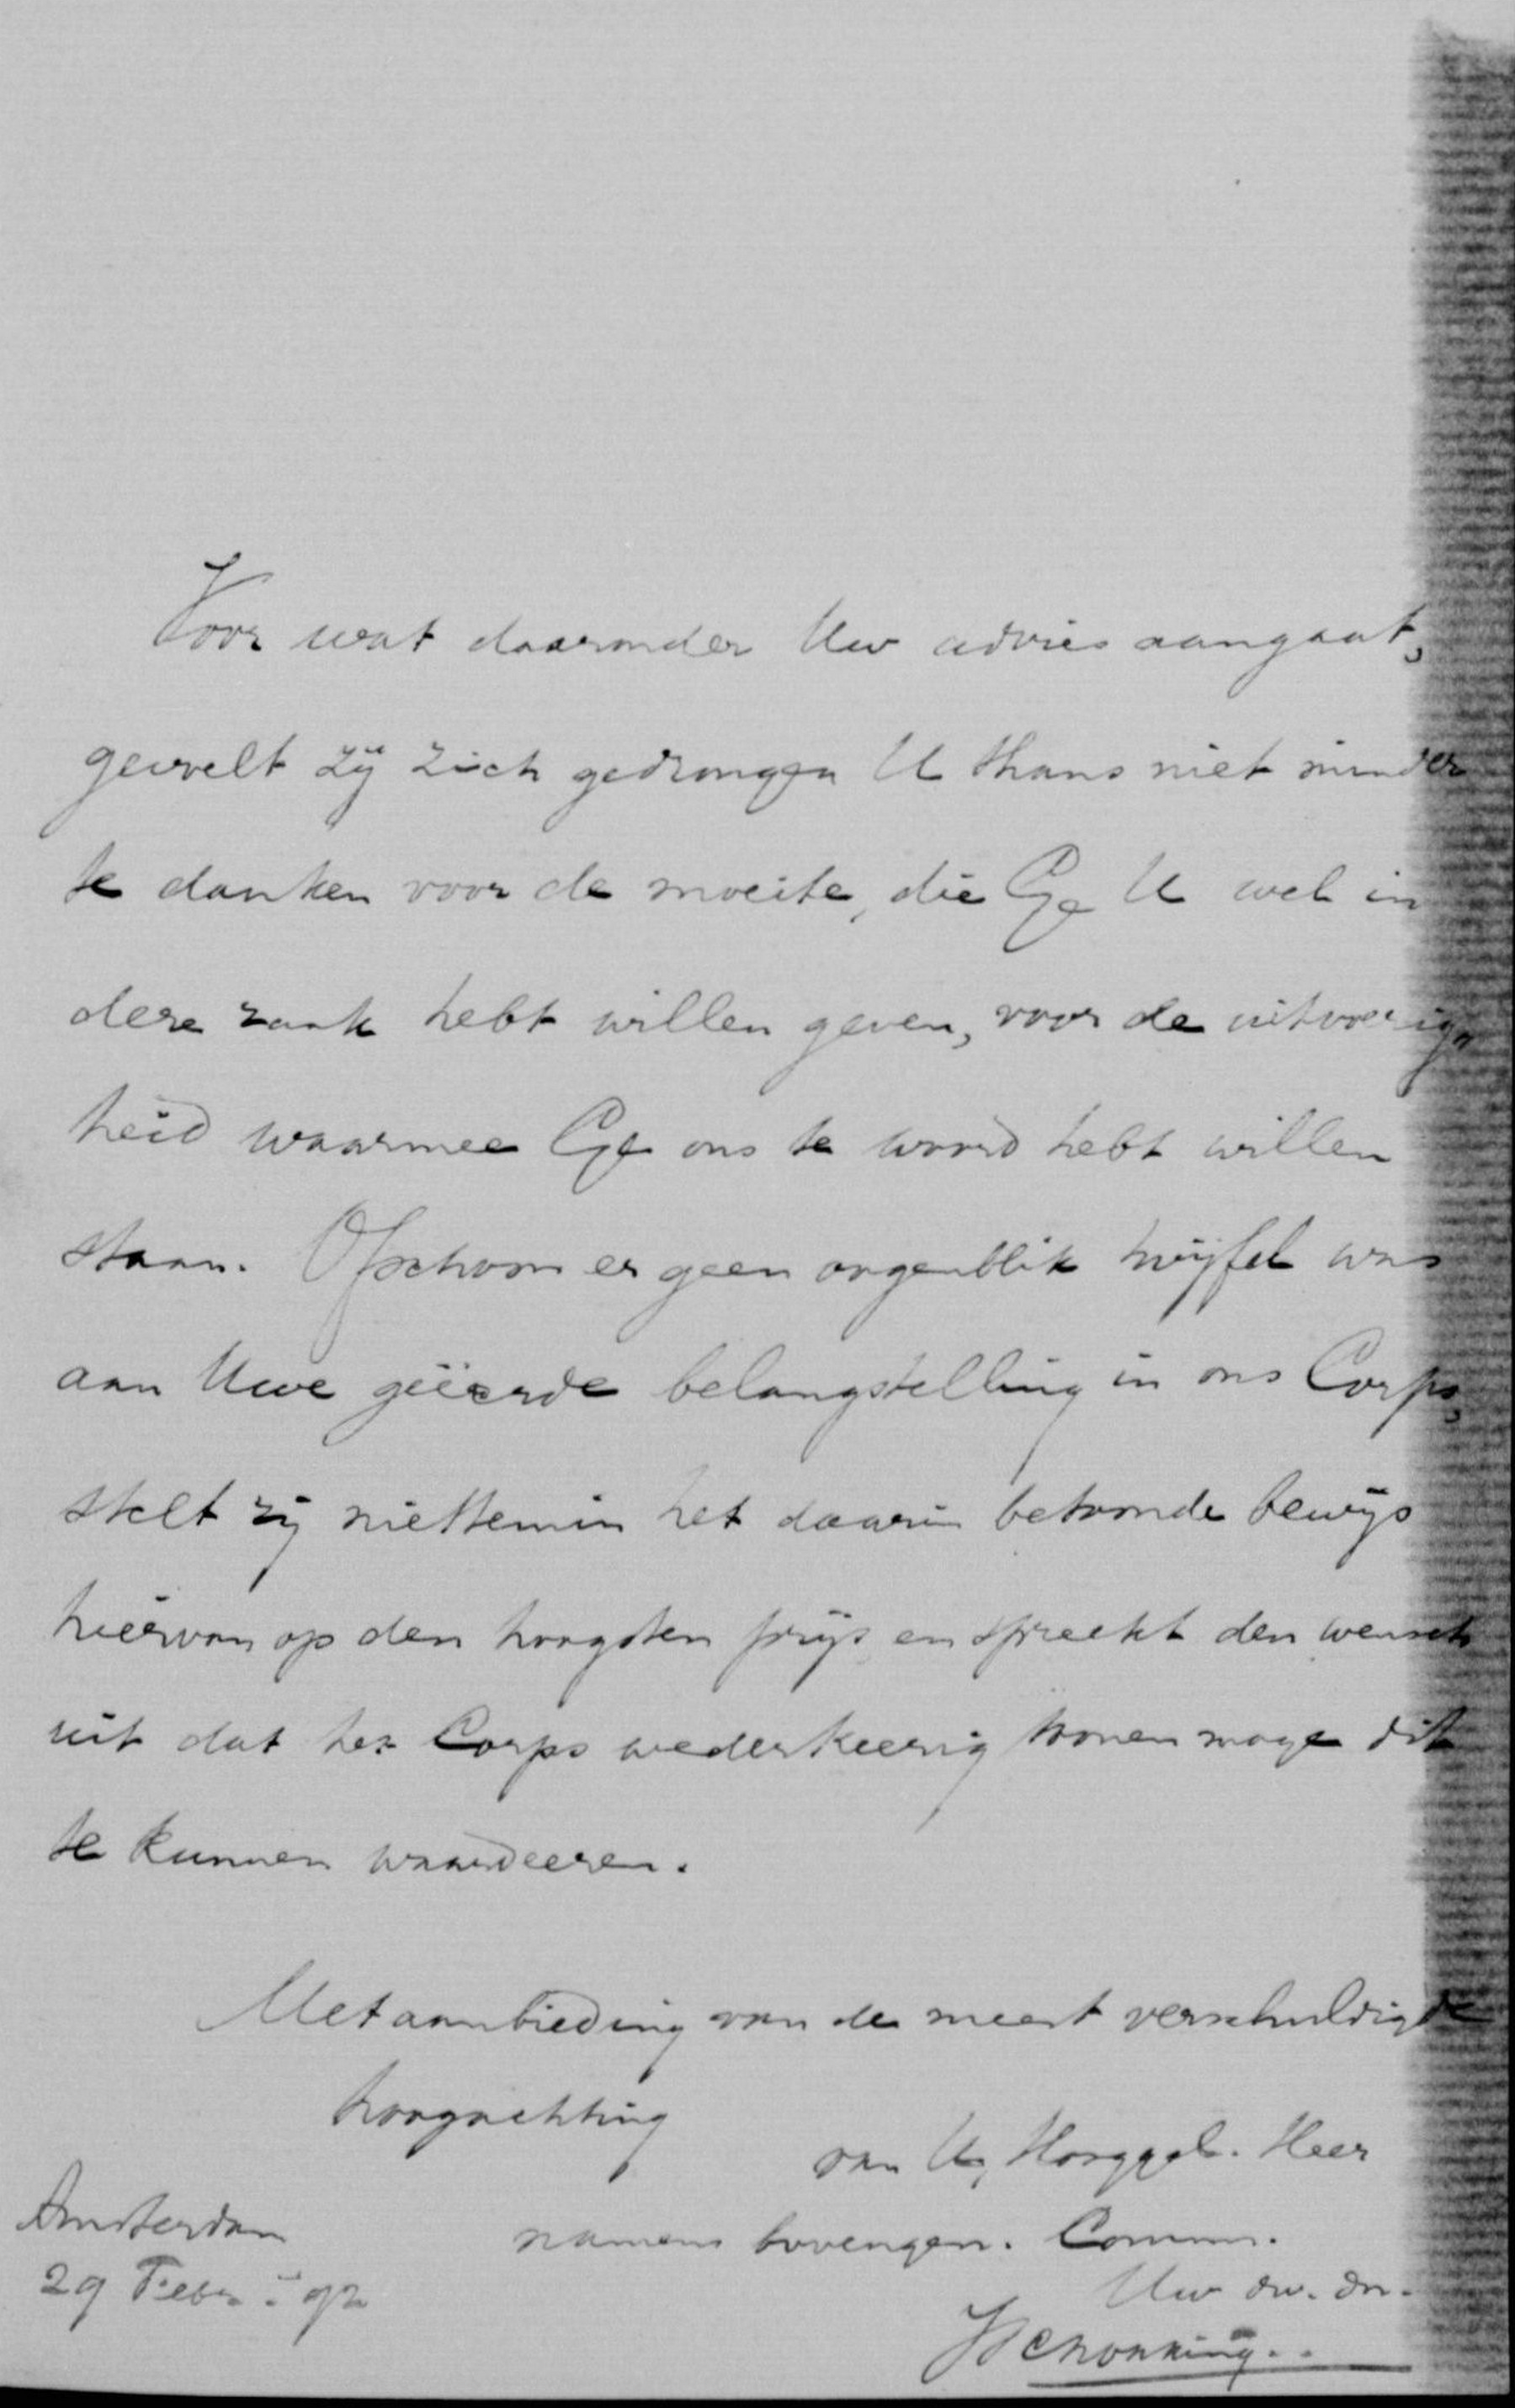 Voor wat daaronder Uw advies aangaat,
gevoelt zij zich gedrongen U thans niet minder
te danken voor de moeite, die Ge U wel in
deze zaak hebt willen geven, voor de uitvoerig-
heid waarmee Ge ons te woord hebt willen
staan. Ofschoon er geen oogenblik twijfel was
aan Uwe geëerde belangstelling in ons Corps,
stelt zij niettemin het daarin betoonde bewijs
hiervan op den hoogsten prijs en spreekt den wensch
uit dat het Corps wederkeerig toonen moge dit
te kunnen waardeeren.
Met aanbieding van de meest verschuldigde
hoogachting
van U, Hooggel. Heer
namens bovengen. Comm.
Amsterdam
29 Febr. '92
Uw dw. dn.